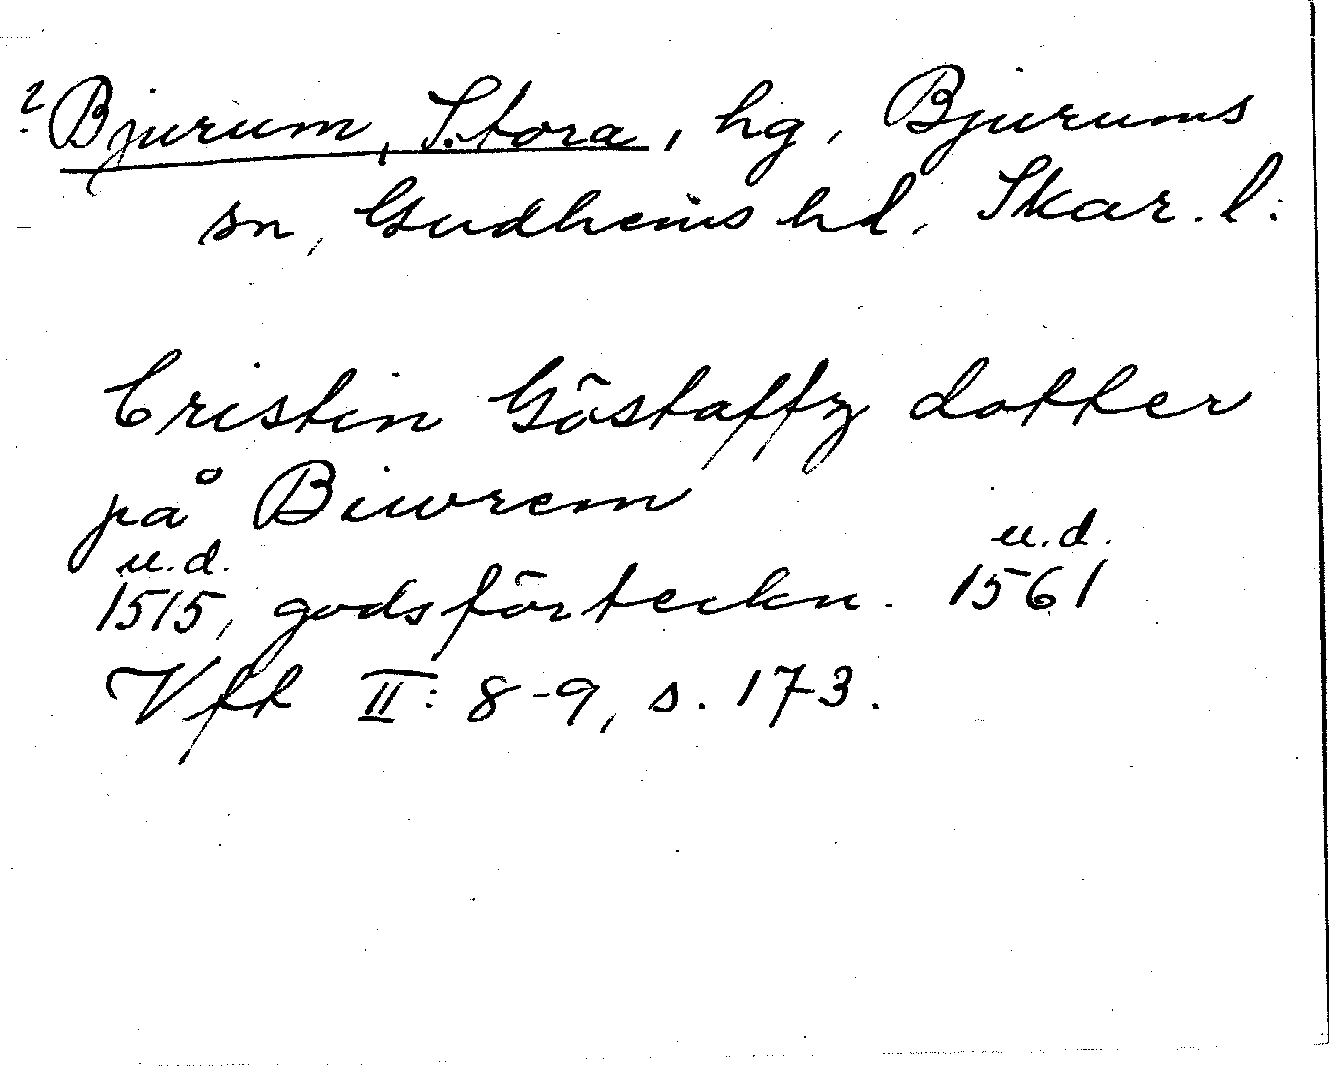 ? Bjurum, Stora, hg, Bjurums
sn, Gudhems hd, Skar. l:
Cristin Göstaffz dotter
på Biwrem
u.d. u.d.
1515, godsförteckn. 1561
Vfk II: 8-9, s. 173.